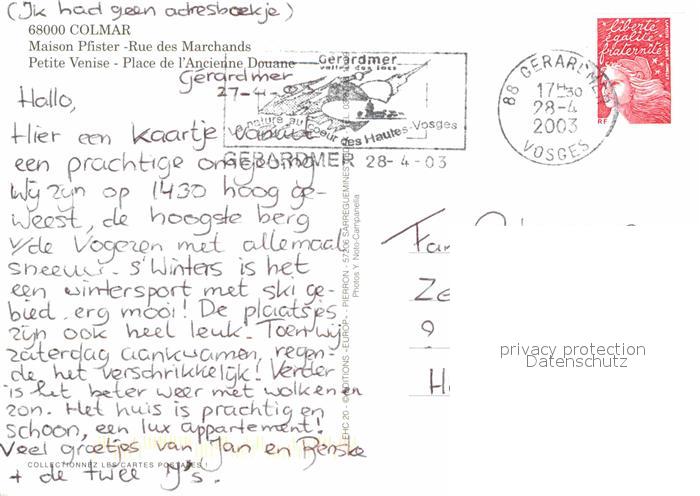 (Ik had geen adresboekje)
68000 COLMAR
Maison Pfister -Rue des Marchands
Petite Venise - Place de l'Ancienne Douane
Gérardmer
27-4-03
Hallo,
Hier een kaartje vanuit
een prachtige omgeving
Wij zijn op 1430 hoog ge-
weest, de hoogste berg
v/de Vogezen met allemaal
sneeuw. s'Winters is het
een wintersport met ski ge-
bied. erg mooi! De plaatsjes
zijn ook heel leuk. Toen wij
zaterdag aankwamen, regen-
de het verschrikkelijk! Verder
is het beter weer met wolken en
zon. Het huis is prachtig en
schoon, een lux appartement!
Veel groetjes van Jan en Renske
+ de twee J's.
COLLECTIONNEZ LES CARTES POSTALES !
Gérardmer
vallée des lacs
nature au coeur des Hautes-Vosges
GERARDMER 28-4-03
88 GERARDMER
17H30
28-4
2003
VOSGES
liberté
égalité
fraternité
RF
LEHC 20 - © EDITIONS «EUROP» - PIERRON - 57206 SARREGUEMINES
Photos Y. Noto-Campanella
Fam
Ze
9
H
privacy protection
Datenschutz